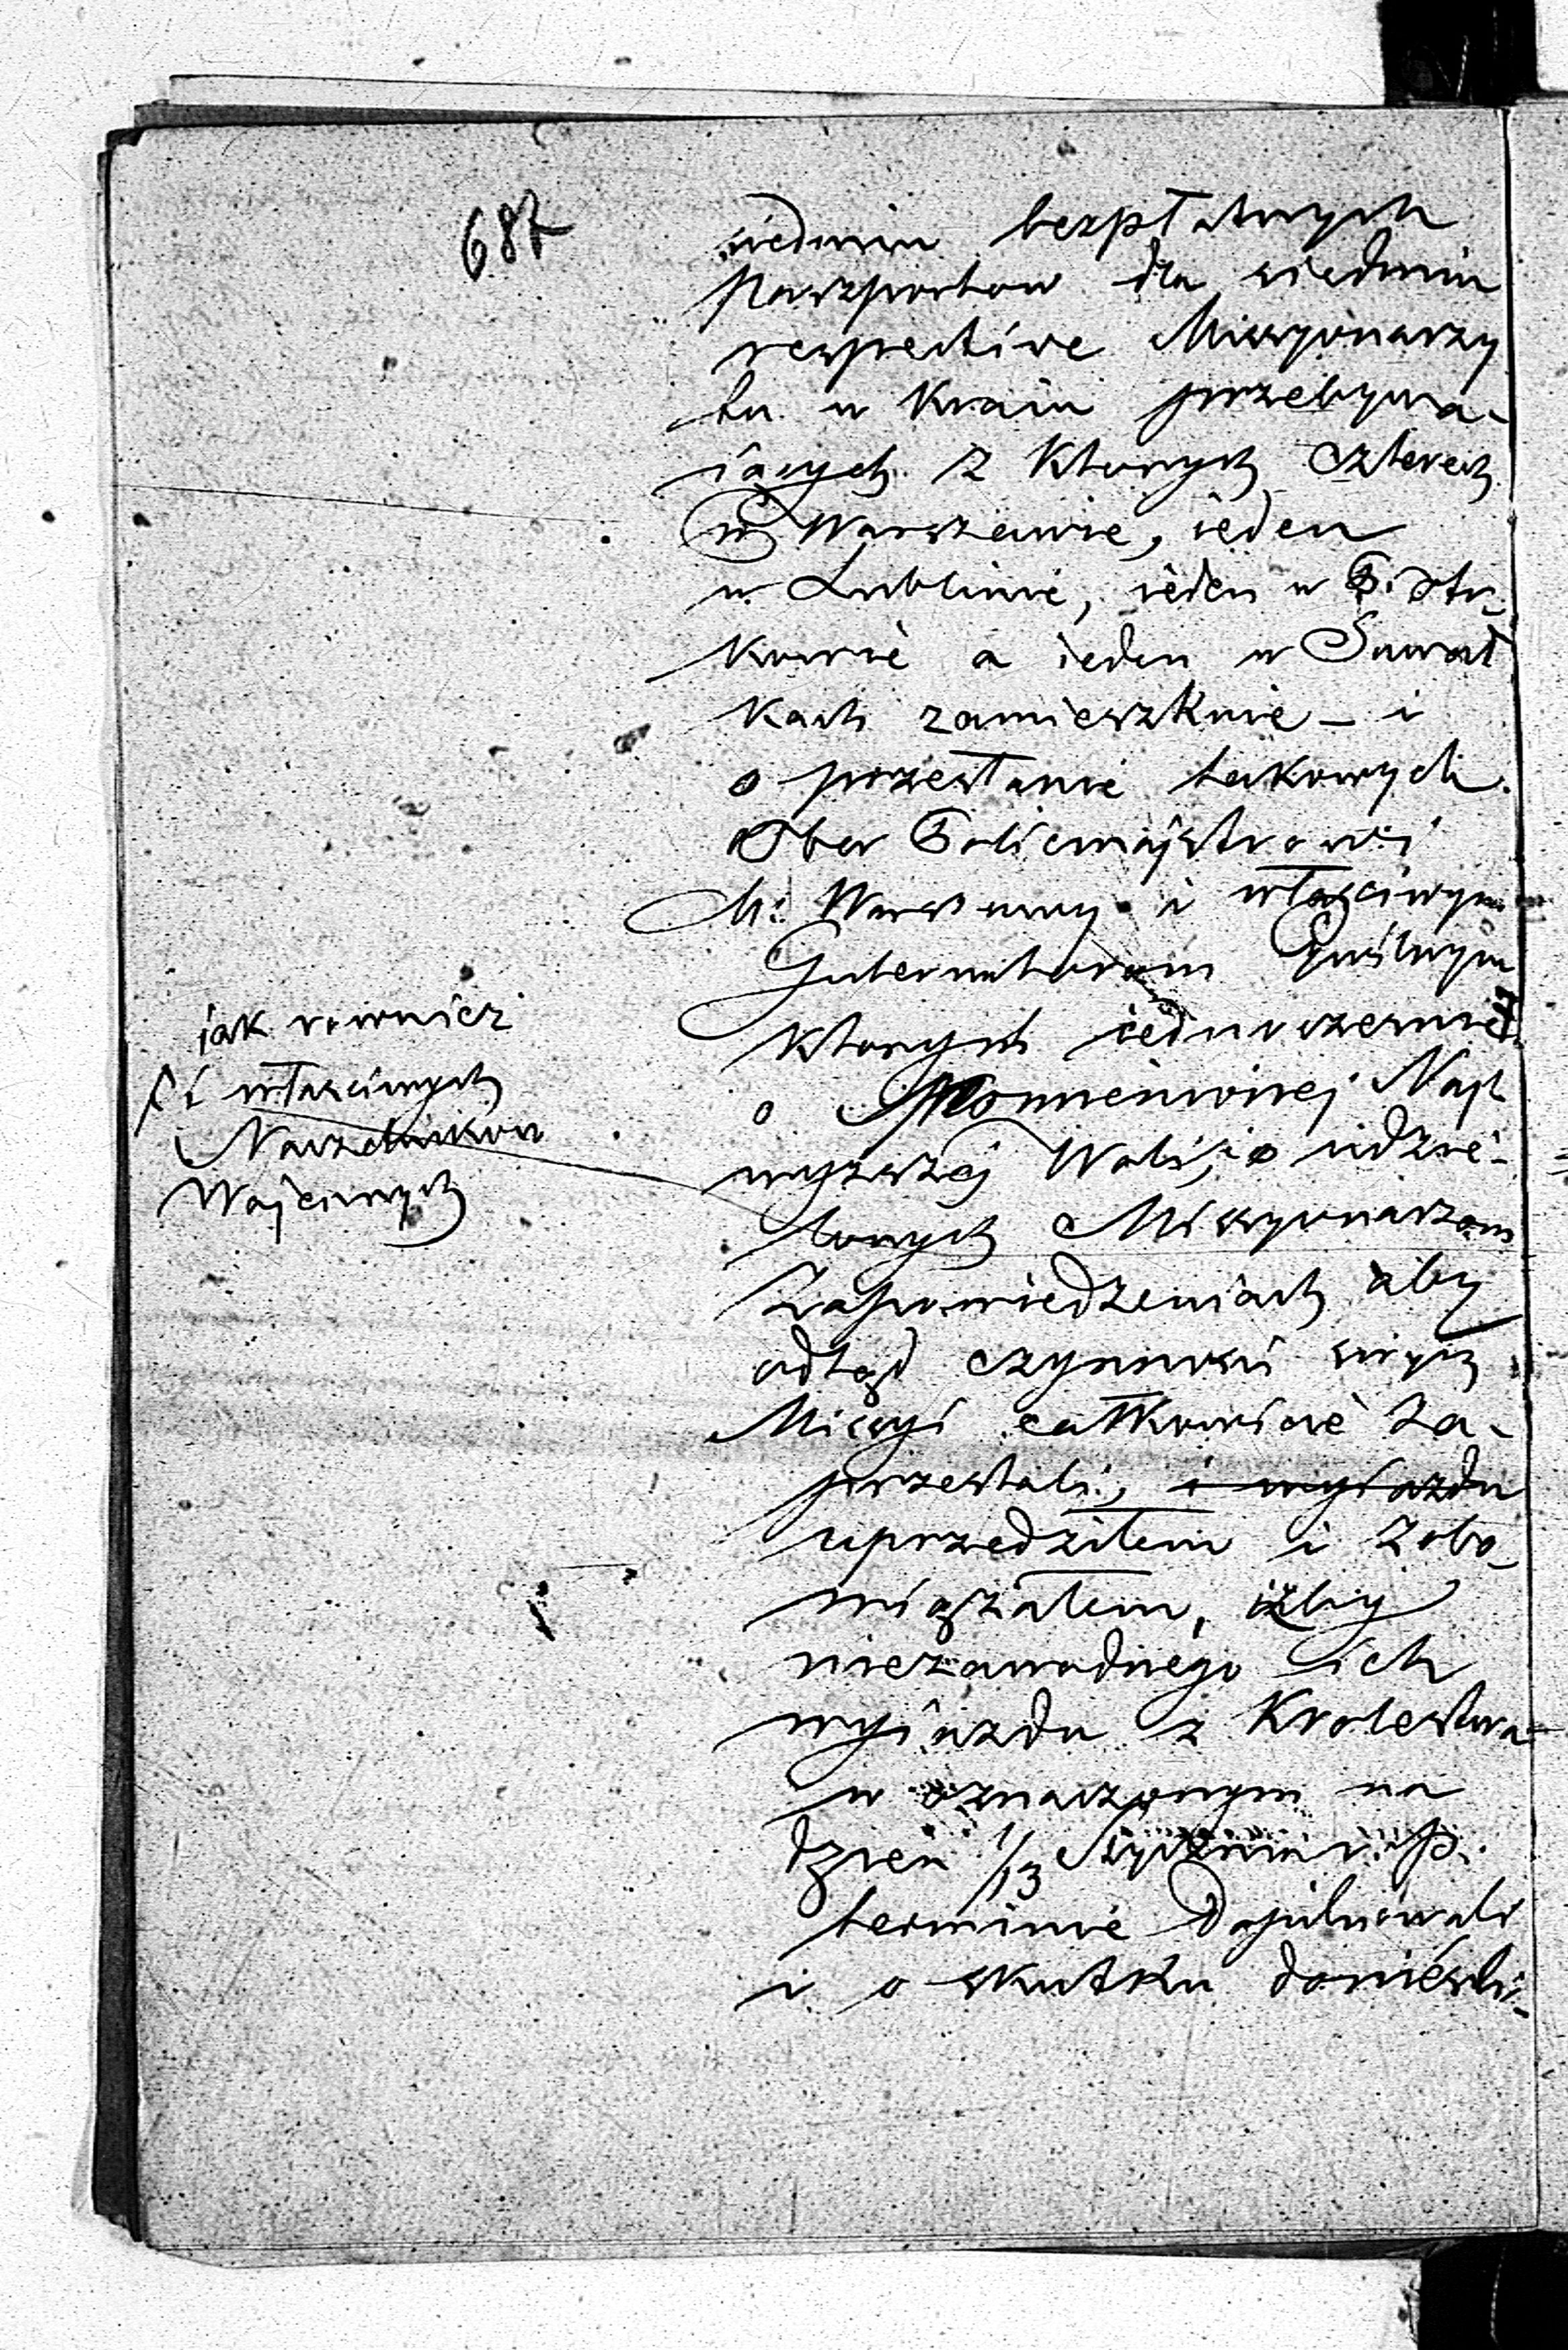 687
siedmiu bezpłatnych
paszportow dla siedmiu
respective Missyonarzy
tu w Kraiu przebywa-
iących z ktorych czterech
w Warszawie, ieden
w Lublinie, ieden w Piotr-
kowie a ieden w Suwał
kach zamieszkuie – i
o przesłanie takowych
Ober Policmajstrowi
M: Warszawy i właściwym
Gubernatorom Cywilnym
ktorych iednocześnie
o Najt
wyzszej Woli, i o udzie-
lonych Missyonarzom
Zapowiedzeniach aby
odtąd czynności swych
Missyi całkowicie za-
przestali, i wyiazdu
uprzedziłem i zobo-
wiązałem, iżby
niezawodnego ich
wyiazdu z Krolestwa
w oznaczonym na
dzień 1/13 Stycznia r. p.
terminie dopilnowali
i o skutku donieśli-
iak rownież
i właściwych
Naczelnikow
Wojennych